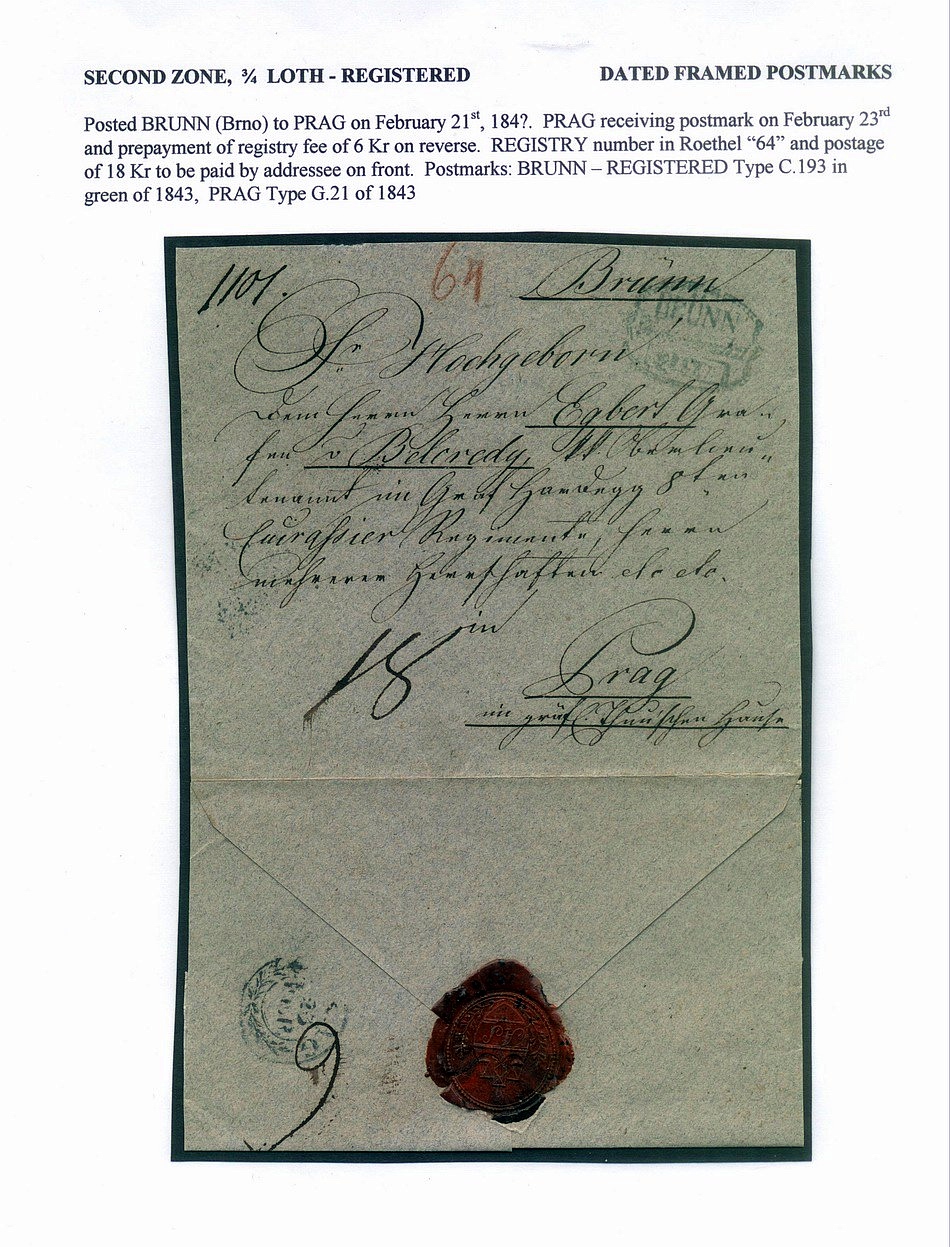 SECOND ZONE, ¾ LOTH - REGISTERED
DATED FRAMED POSTMARKS
Posted BRUNN (Brno) to PRAG on February 21st, 184?. PRAG receiving postmark on February 23rd
and prepayment of registry fee of 6 Kr on reverse. REGISTRY number in Roethel “64” and postage
of 18 Kr to be paid by addressee on front. Postmarks: BRUNN – REGISTERED Type C.193 in
green of 1843, PRAG Type G.21 of 1843
1101.
64
Brünn
BRÜNN
Sr Hochgeborn
dem Herrn Herrn Egbert Gra-
fen v Belcredy, KK Oberlieu-
tenannt im Graf Hardegg 8ten
Cuirassier Regimente, Herrn
mehrerer Herrschaften etc etc.
in
18
Prag
im gräfl. Thunischen Hause
23
FEB